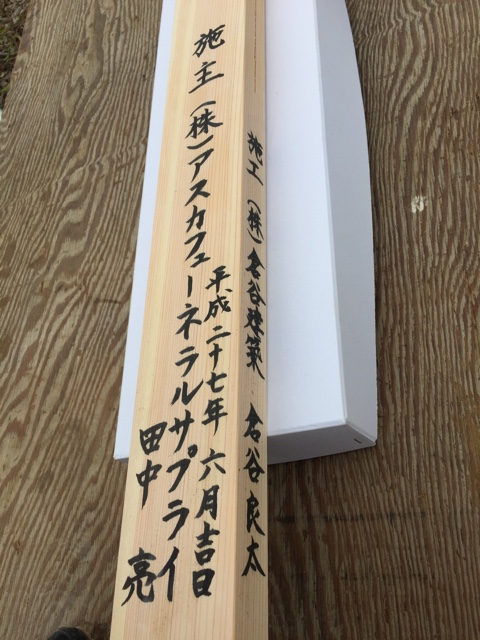 施工（株）倉谷建築　倉谷良太
平成二十七年六月吉日
施主（株）アスカフューネラルサプライ
田中亮